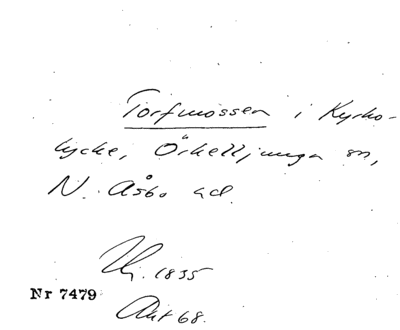 Torfmossen i Kyrko-
lycke, Örkelljunga sn,
N. Åsbo hd.
Hj. 1835
Nr 7479
Akt 68.